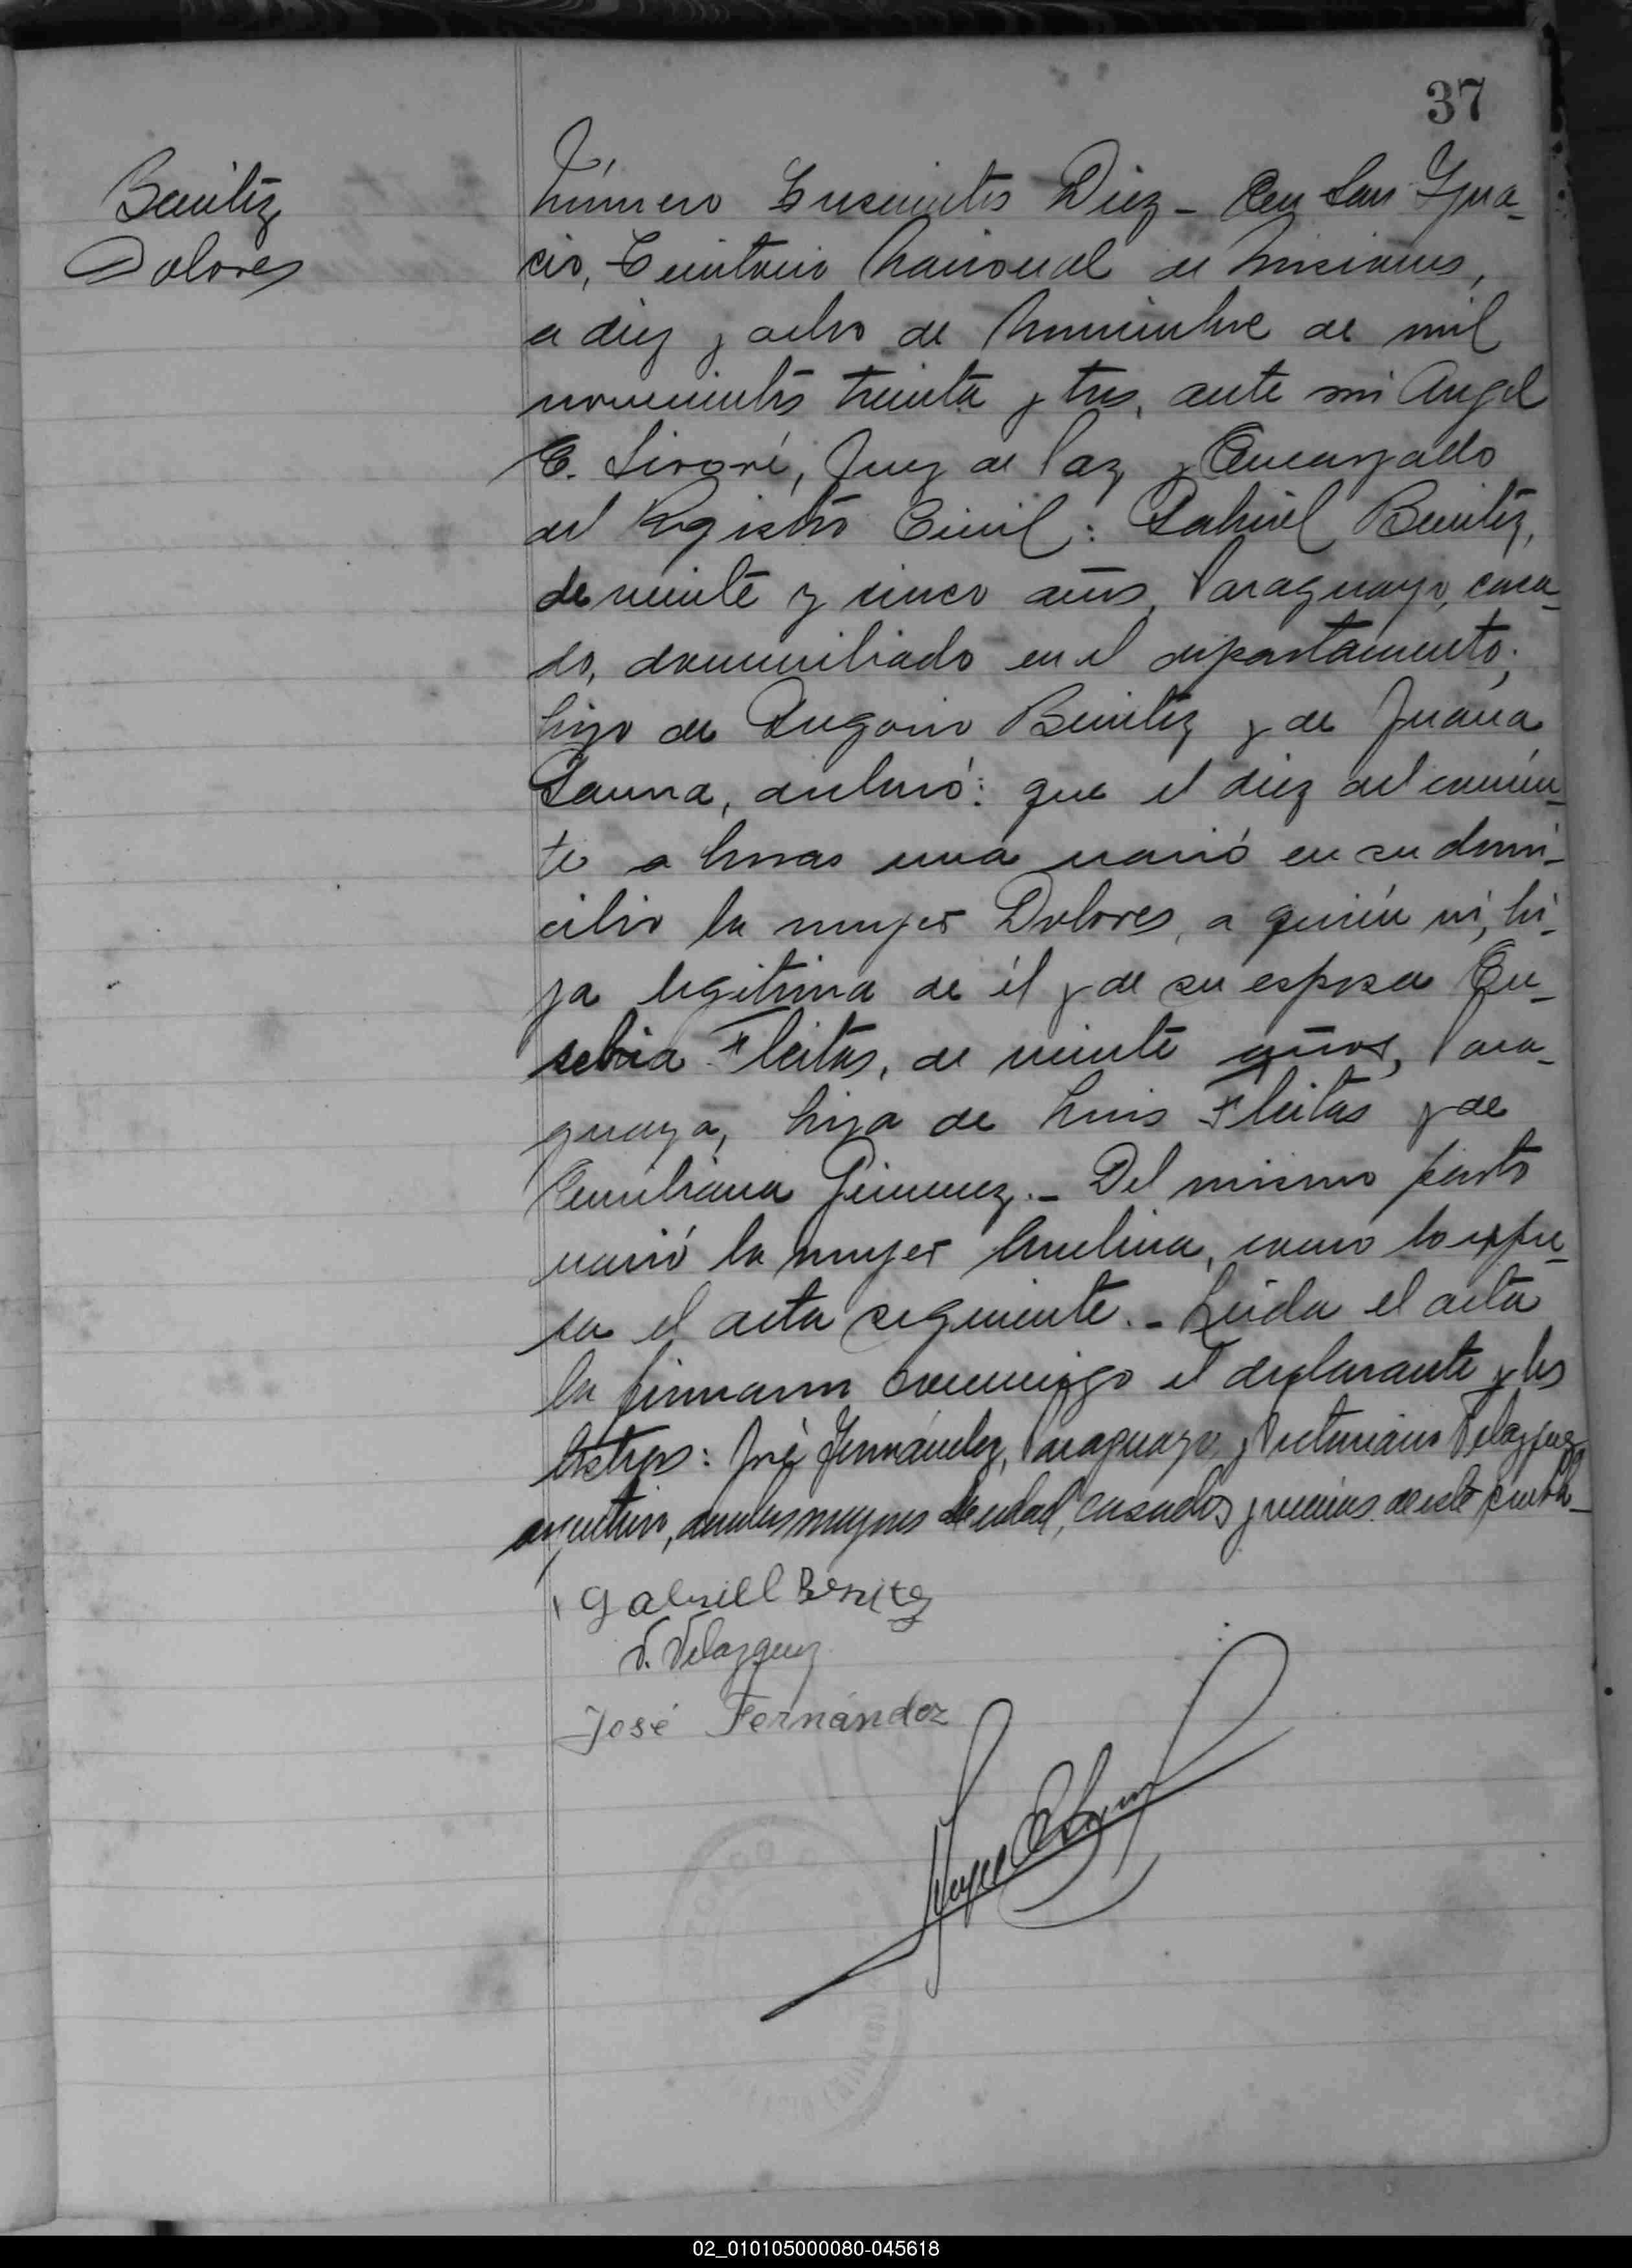 37
Benitez
Dolores
Número Trescientos Diez - En San Igna-
cio, Territorio Nacional de Misiones,
a diez y ocho de Noviembre de mil
novecientos treinta y tres, ante mi Angel
E. Juez de Paz y Encargado
del Registro Civil: Gabriel Benitez,
de veinte y cinco años, Paraguayo, casa-
do, domiciliado en el departamento;
hijo de Benitez y de Juana
declaró: que el diez del corrien-
te a horas una nació en su domi-
cilio la mujer Dolores, a quién ví, hi-
ja legitima de él y de su esposa Eu-
sebia Fleitas, de veinte años, Para-
guaya, hija de Luis Fleitas y de
Emiliana Gimenez.- Del mismo parto
nació la mujer como lo expre-
sa el acta siguiente.- Leida el acta
la firmaron conmigo el declarante y los
testigos: José Fernández, Paraguayo, y Victoriano Velazquez
argentino, ambos mayores de edad, casados y vecinos de este
Gabriell Benitez
V. Velazquez
José Fernández
02_010105000080-045618